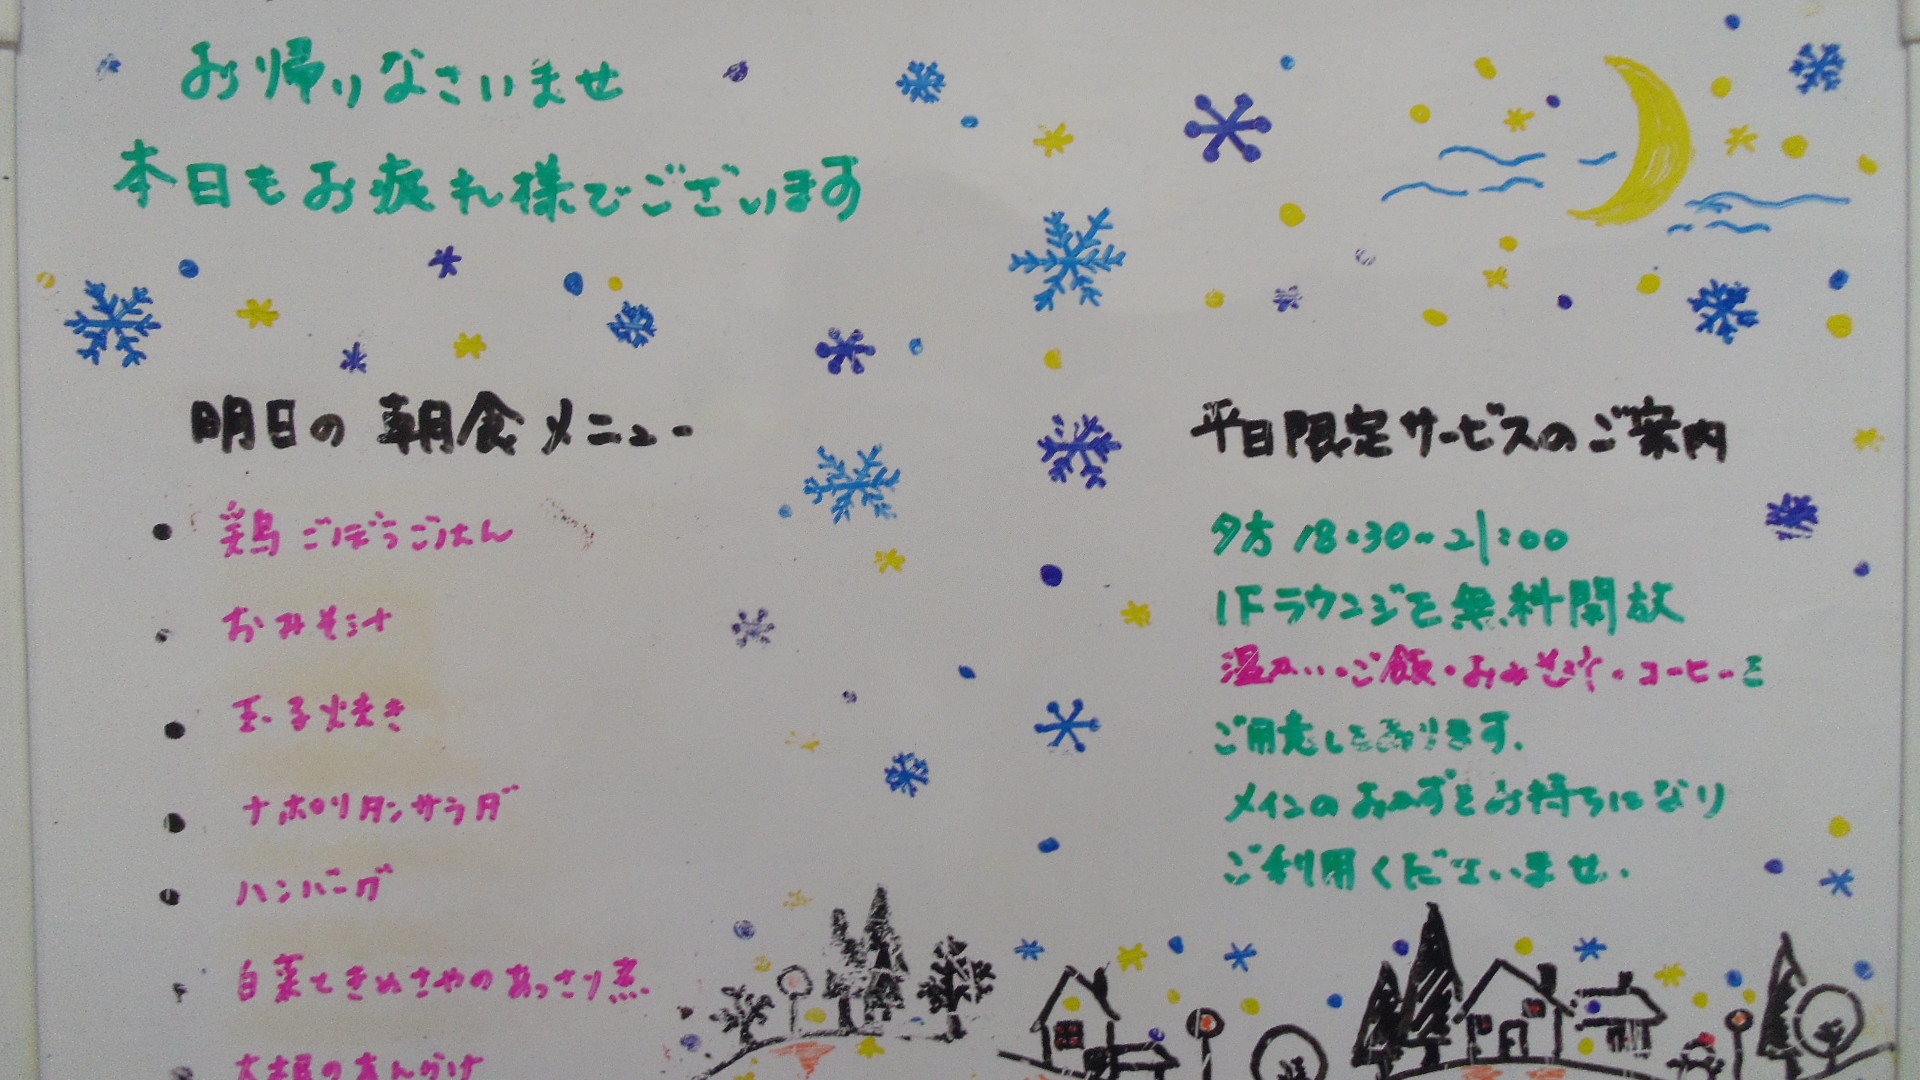 お帰りなさいませ
本日もお疲れ様でございます
明日の朝食メニュー
・鶏ごぼうごはん
・おみそ汁
・玉子焼き
・ナポリタンサラダ
・ハンバーグ
・白菜ときぬさやのあっさり煮
・大根のあんかけ
平日限定サービスのご案内
夕方 18:30~21:00
1Fラウンジを無料開放
温かい・ご飯・おみそ汁・コーヒーを
ご用意しております。
メインのおかずをお持ちになり
ご利用くださいませ。